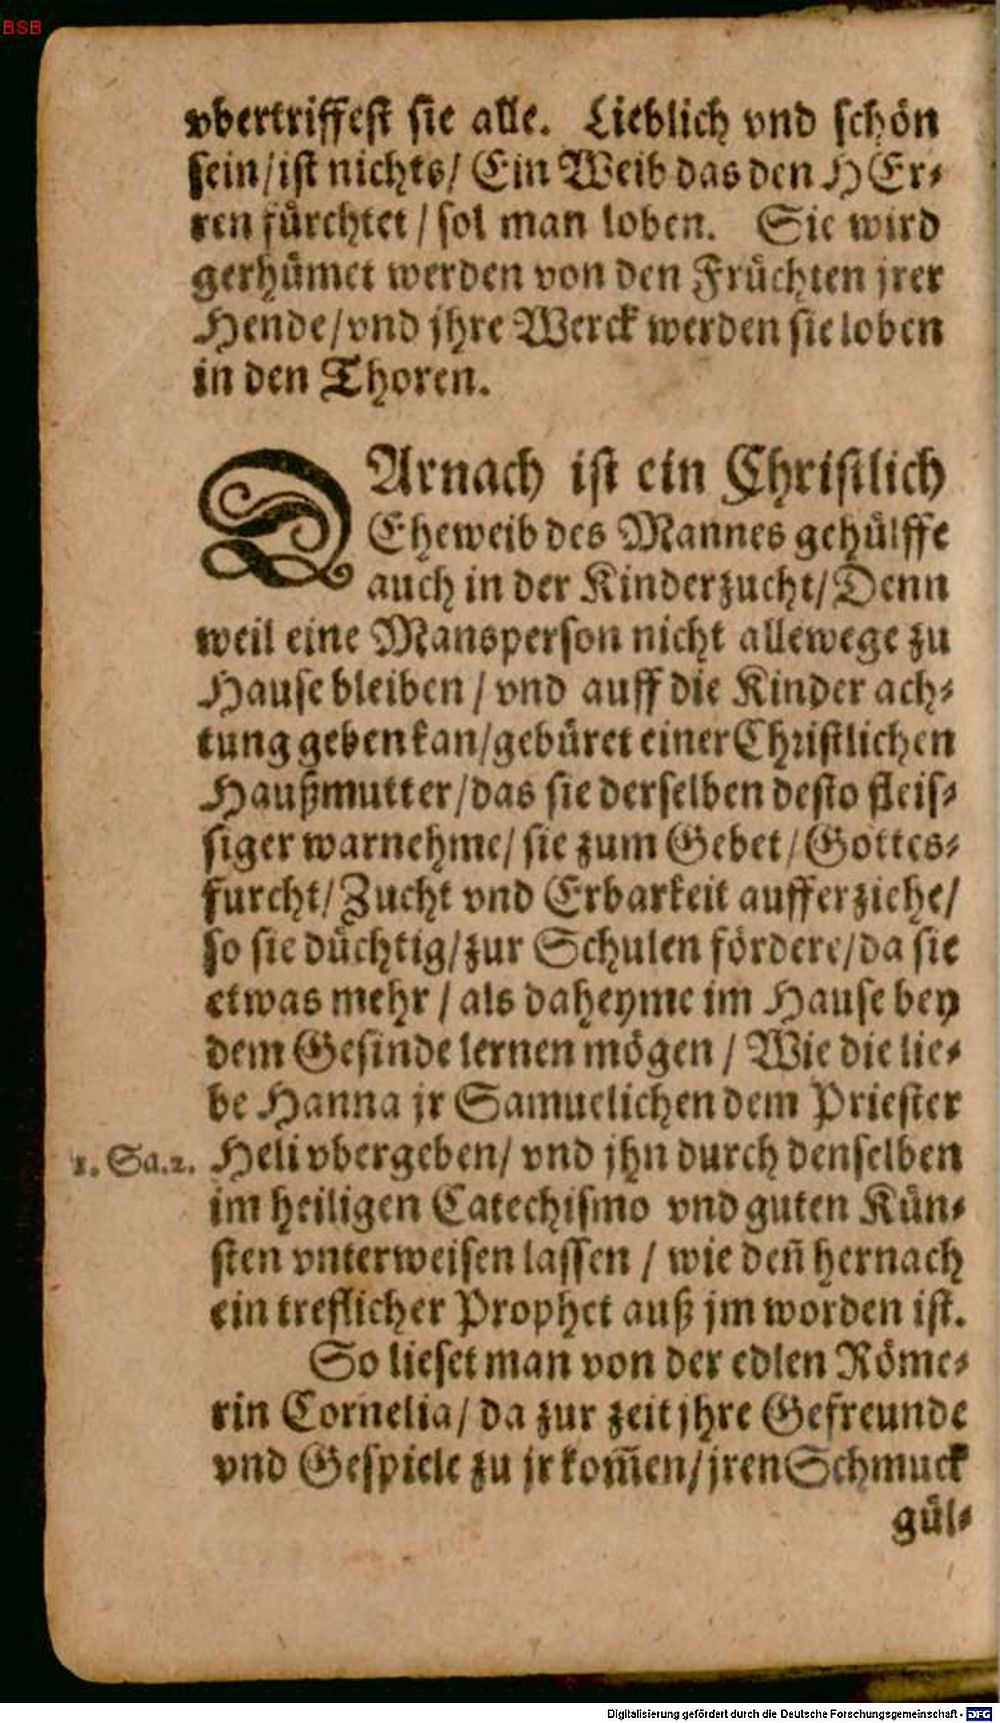 BSB
vbertriffest sie alle. Lieblich vnd schön
sein/ist nichts/ Ein Weib das den HEr⸗
ren fürchtet / sol man loben. Sie wird
gerhümet werden von den Früchten jrer
Hende/vnd jhre Werck werden sie loben
in den Thoren.
DArnach ist ein Christlich
Eheweib des Mannes gehülffe
auch in der Kinderzucht/Denn
weil eine Mansperson nicht allewege zu
Hause bleiben / vnd auff die Kinder ach⸗
tung geben kan/gebüret einer Christlichen
Haußmutter/das sie derselben desto fleis⸗
siger warnehme/ sie zum Gebet/Gottes⸗
furcht/Zucht vnd Erbarkeit aufferziehe/
so sie düchtig/zur Schulen fördere/da sie
etwas mehr / als daheyme im Hause bey
dem Gesinde lernen mögen / Wie die lie⸗
be Hanna jr Samuelichen dem Priester
1. Sa.2. Heli vbergeben/ vnd jhn durch denselben
im heiligen Catechismo vnd guten Kün⸗
sten vnterweisen lassen / wie deñ hernach
ein treflicher Prophet auß jm worden ist.
So lieset man von der edlen Röme⸗
rin Cornelia/ da zur zeit jhre Gefreunde
vnd Gespiele zu jr kom̃en/jren Schmuck
gül⸗
Digitalisierung gefördert durch die Deutsche Forschungsgemeinschaft - DFG